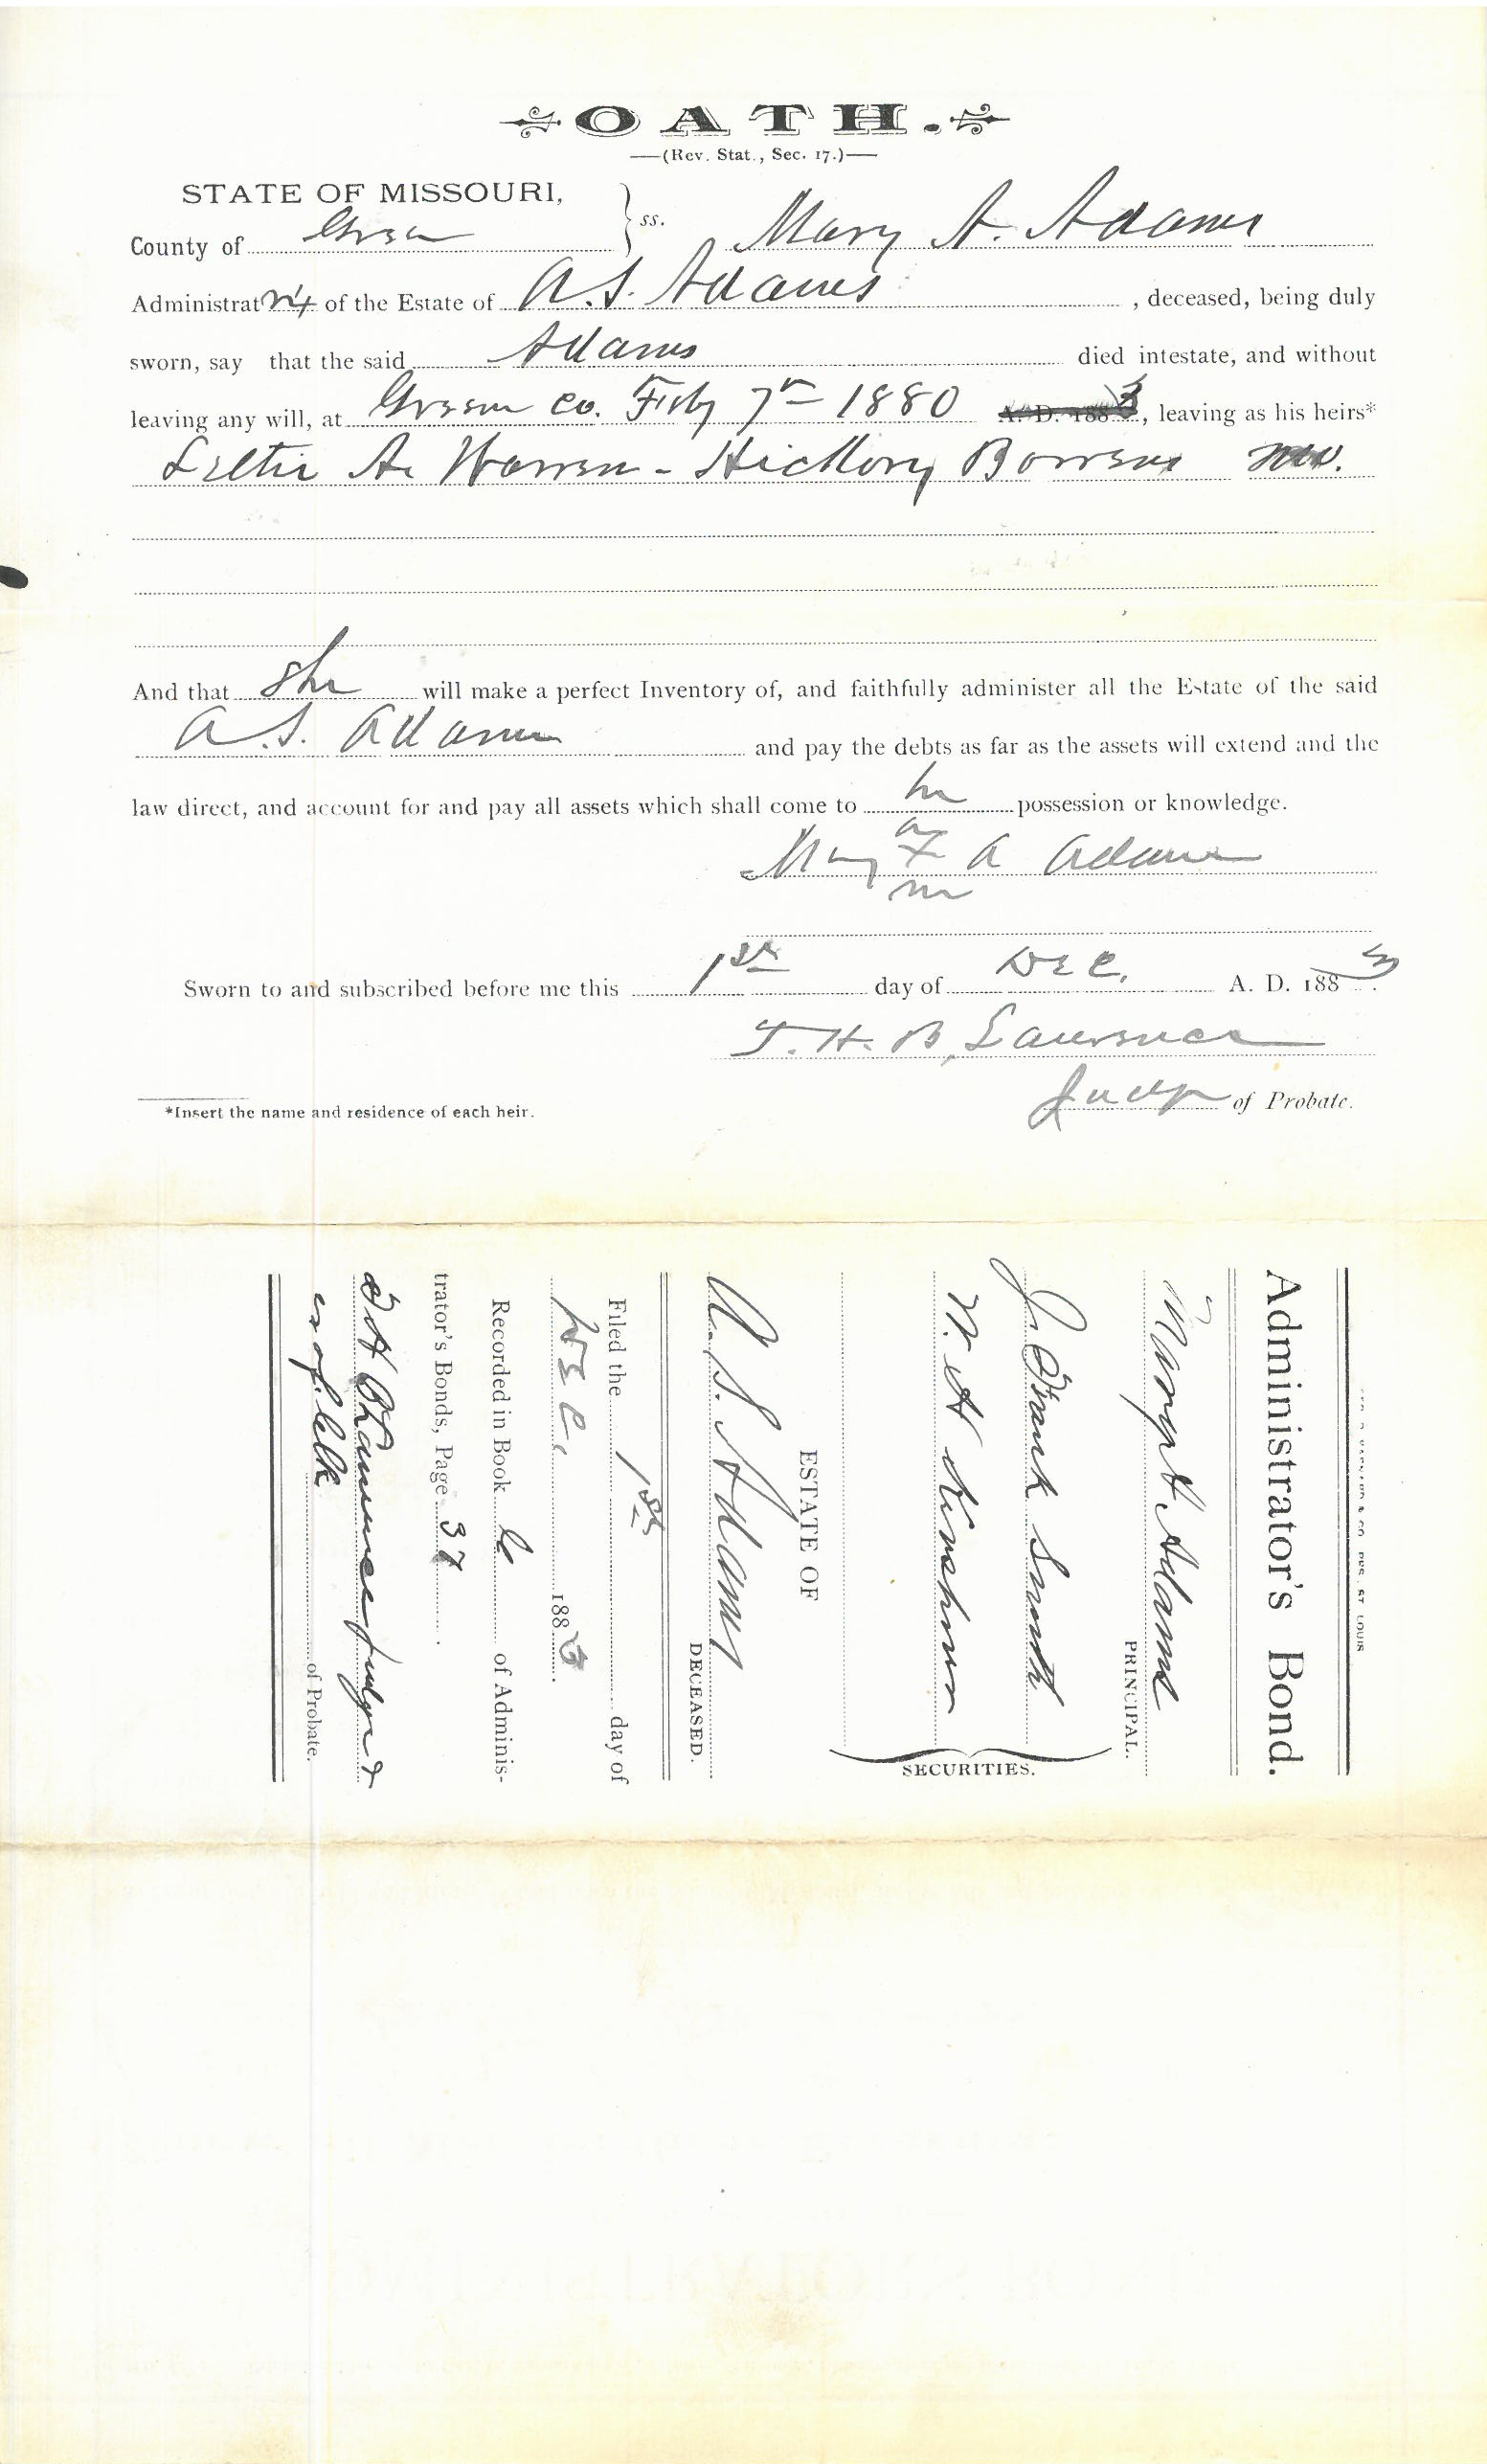 OATH.
(Rev. Stat., Sec. 17.)
STATE OF MISSOURI,
County of Green } ss. Mary A. Adams
Administratrix of the Estate of A. S. Adams, deceased, being duly
sworn, say that the said Adams died intestate, and without
leaving any will, at Green co. Feby 7th 1880 A. D. 1883, leaving as his heirs*
A. Warren - Hickory Barrens Mo.
And that she will make a perfect Inventory of, and faithfully administer all the Estate of the said
A. S. Adams and pay the debts as far as the assets will extend and the
law direct, and account for and pay all assets which shall come to her possession or knowledge.
her
Mary X A Adams
Sworn to and subscribed before me this 1st day of Dec. A. D. 1883.
T. H. B. Lawrence
*Insert the name and residence of each heir.
Judge of Probate.
ST. LOUIS
Administrator's Bond.
Mary A Adams
PRINCIPAL.
J. Frank Smith
W. H Kershner
SECURITIES.
ESTATE OF
A. S. Adams
DECEASED.
Filed the 1st day of
Dec. 1883.
Recorded in Book C of Adminis-
trator's Bonds, Page 37.
T H B Lawrence Judge &
exof. Clk of Probate.